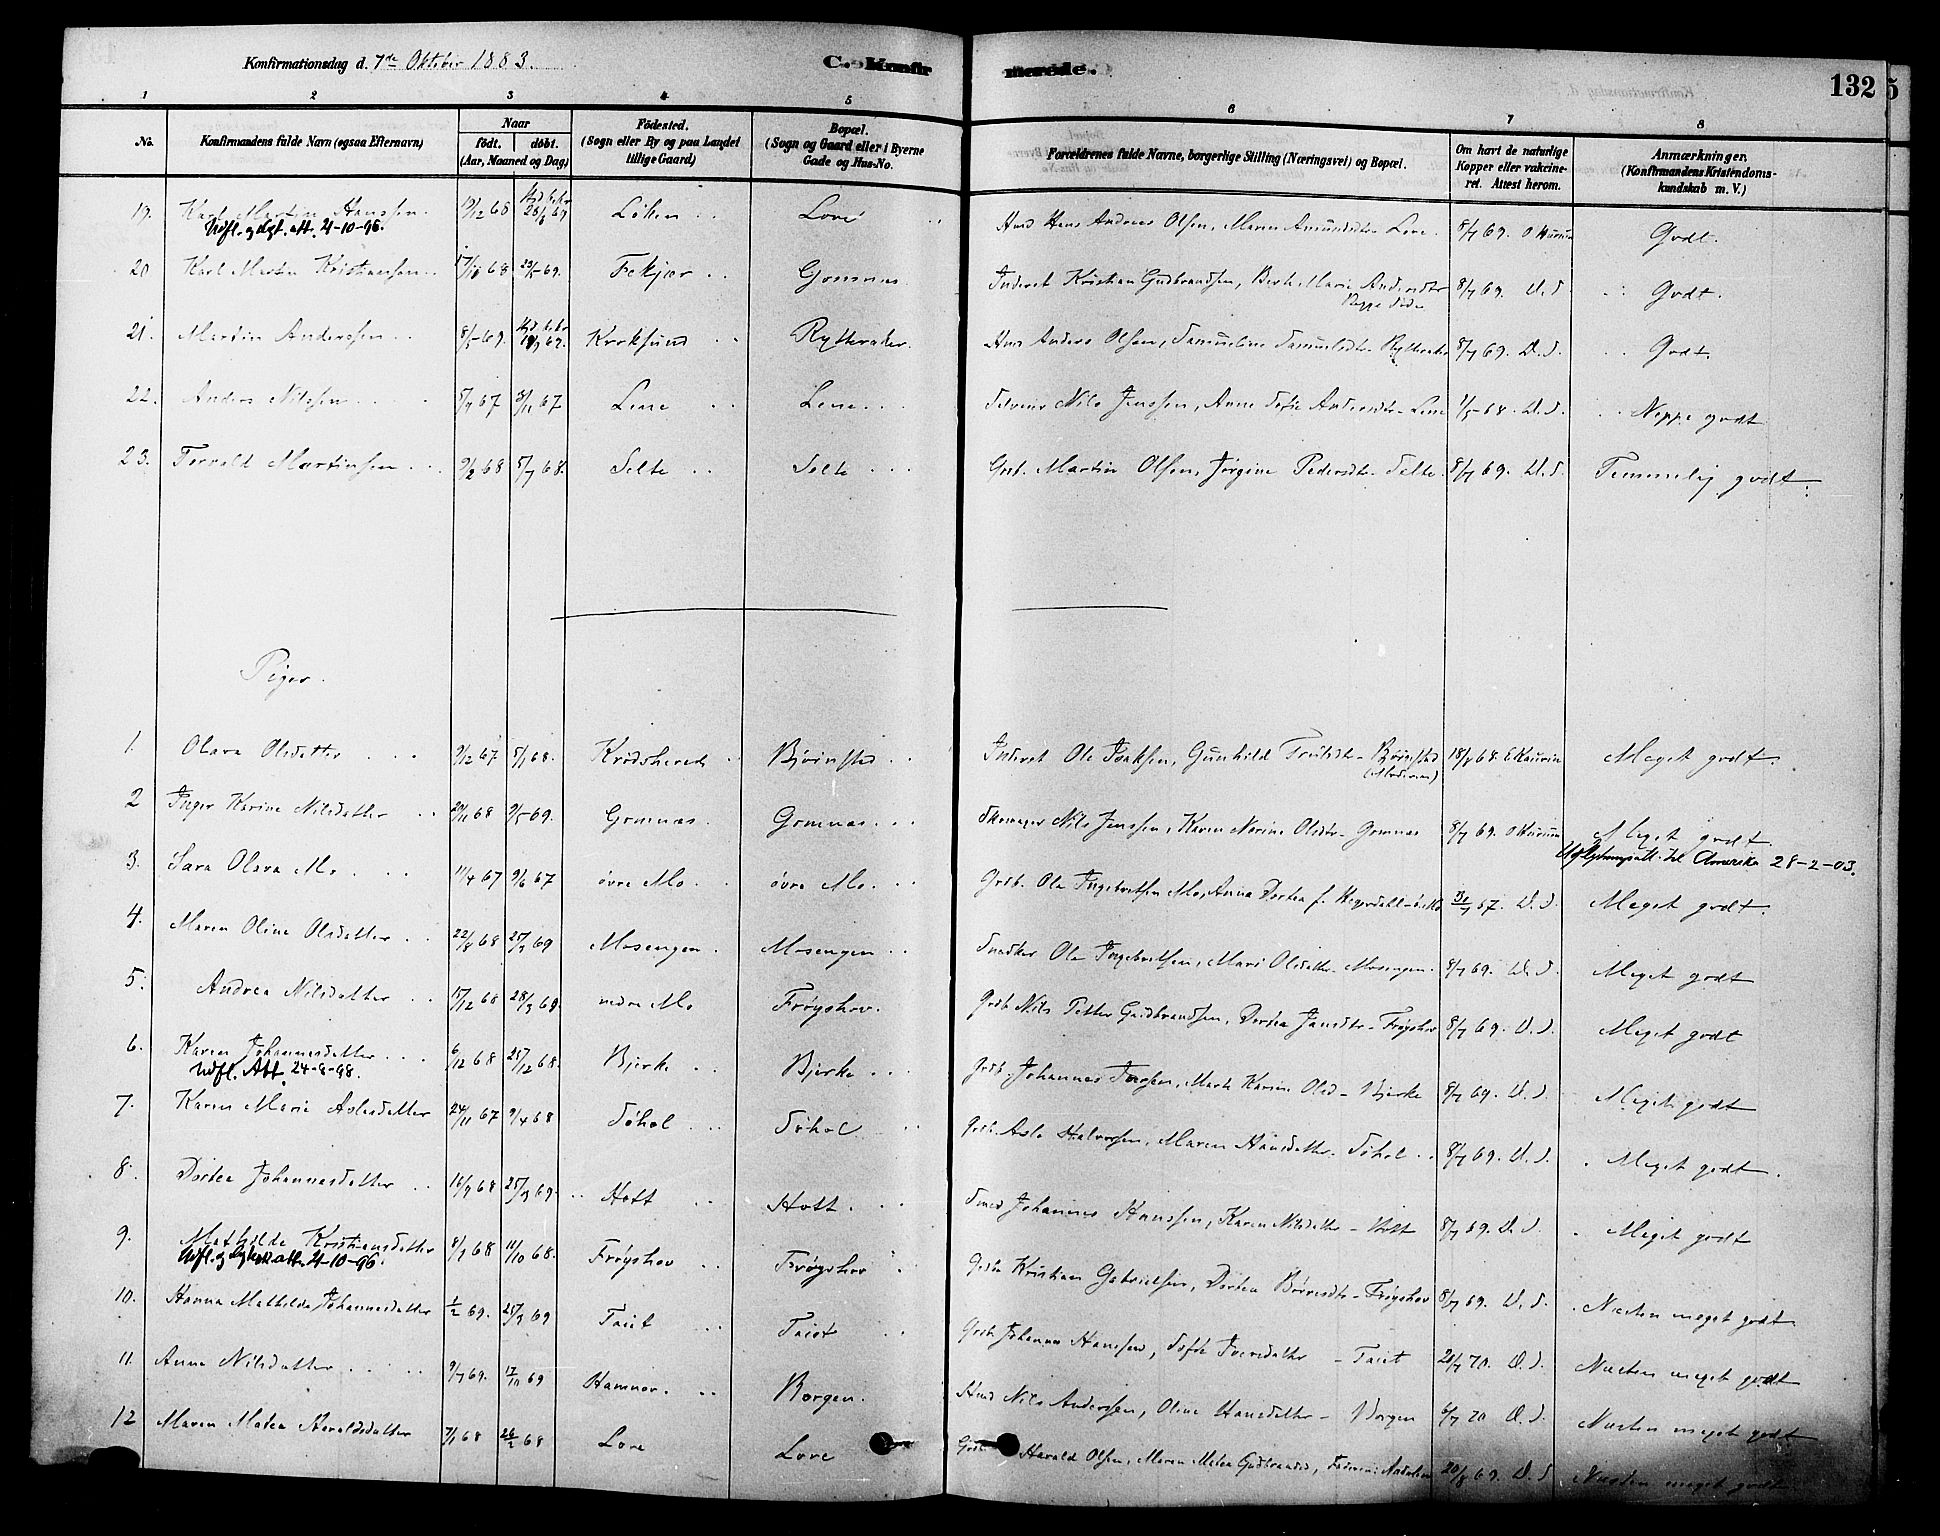 Konfirmationsdag d. 7de Oktober 1883. C. Konfirmerede. 132
1 2 3 4 5 6 7 8
No. Konfirmandens fulde Navn (ogsaa Efternavn) Naar født. døbt. (Aar, Maaned og Dag) Födested. (Sogn eller By og paa Landet tillige Gaard) Bopæl. (Sogn og Gaard eller i Byerne Gade og Hus-No. Forældrenes fulde Navne, borgerlige Stilling (Næringsvei) og Bopæl. Om havt de naturlige Kopper eller vakcineret. Attest herom. Anmærkninger. (Konfirmandens Kristendomskundskab m. V.)
19. Karl Martin Hanssen. 19/12 68 Løken Love Hans Andreas Olsen, Maren Amundsdtr Love. 8/7 69. Godt.
4-10-96.
20 Karl Martin Kristiansen 68 69. Fekjær Gomnæs Inderst Kristian Gudbrandsen, Berthe Marie Andersdtr 8/7 69. D. S. Godt.
21. Martin Anderssen 8/5 69. Kroksund Rytteraker. Anders Olsen, Samueline Samuelsdtr Rytteraker 8/7 69. D. S. Godt
22. Anders Nilssen 5/7 67 8/11 67 Lene Lene Selveier Nils Jenssen, Anne Sofie Andersdtr - Lene 1/5 68. D. S. Neppe godt
23. Torvald Martinsen 9/2 68 5/7 68. Selte Selte Grdb. Martin Olsen, Jørgine Pedersdtr - Selte. 8/7 69. D. S. Temmelig godt.
Piger.
1. Olava Olsdatter 9/12 67 5/1 68. Krødshered Bjørnstad Inderst Ole Isaksen, Gunhild Trulsdtr - Bjørnstad 18/8 68. E Kaurin Meget godt.
(Modum)
2 Inger Karine Nilsdatter 29/11 68 9/5 69. Gomnæs. Gomnæs Skomager Nils Jenssen, Karen Norine Olsdtr - Gomnæs 8/7 69. Meget godt.
Udflytningsatt. til Amerika 28-2-03.
3. Sara Olava Mo 11/4 67 9/6 67 øvre Mo øvre Mo. Grdb. Ole Ingebretsen Mo, Anna Dortea f. 67. D. S. Meget godt.
4. Maren Oline Olsdatter 22/8 68 25/3 69 Mosengen Mosengen Snedker Ole Ingebretsen, Mari Olsdatter - Mosengen. 8/7 69. D. S. Meget godt
5. Andrea Nilsdatter 15/12 68 28/3 69 nedre Mo Frøyshov. Grdb. Nils Petter Gudbrandsen, Dortea Jansdtr - Frøyshov 8/7 69. D. S. Meget godt
6. Karen Johannesdatter 6/12 68 25/12 68. Bjerke Bjerke Grdb. Johannes Marte Karine Olsd - Bjerke 8/7 69. D. S. Meget godt
Udfl. Att. 24-8-98.
7. Karen Marie Aslesdatter 24/11 67 9/4 68 Søhol Søhol Grdb. Asle Halvorsen, Maren Hansdatter - Søhol 8/7 69. D. S. Meget godt.
8. Dortea Johannesdatter 16/7 68 25/3 69. Hott Hott. Smed Johannes Hanssen, Karen Nilsdatter - Hott 8/7 69. D. S. Meget godt
9. Mathilde Kristiansdatter 8/7 68 11/10 68. Frøyshov Frøyshov Grdb. Kristian Gabrielsen, Dortea Børresdtr - Frøyshov 8/7 69. D. S. Næsten meget godt
4-10-96.
10. Hanna Mathilde Johannesdatter 1/2 69. 25/3 69 Taiet Taiet Grdb. Johannes Hanssen, Sofie Iversdatter - Taiet 20/7 70. D. S. Næsten meget godt
11. Anna Nilsdatter 9/7 69. 17/10 69 Hamnor. Borgen. Nils Anderssen, Oline Hansdatter - Borgen 6/7 70 D. S. Næsten meget godt
12 Maren Matea Haraldsdatter 7/1 68 26/2 68 Love Love Grdb. Harald Olsen, Maren Matea Gudbrandsd, 20/8 69. D. S Næsten meget godt